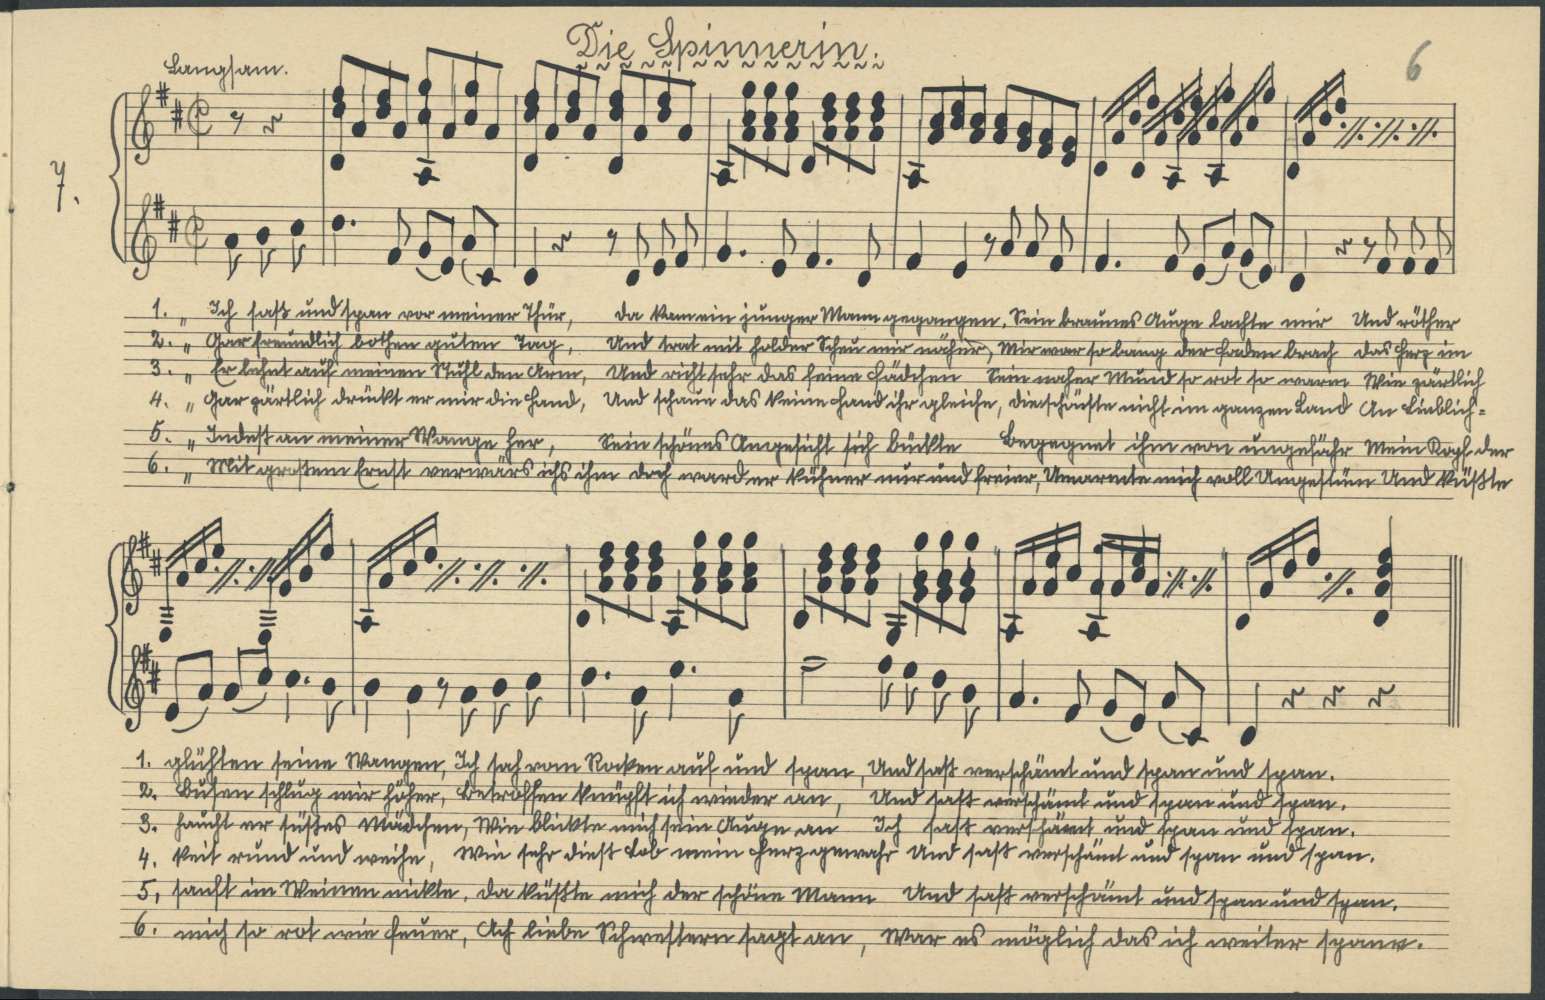 Die Spinnerin.
6
Langsam.
7.
1. „ Ich saß und span vor meiner Thür, da kam ein junger Mann gegangen. Sein braunes Auge lachte mir Und röther
2. „ Gar freundlich bothen guten Tag, Und trat mit holder Scheu mir näher, Mir war so bang der Faden brach das Herz im
3. „ Er lehnt auf meinen Stuhl den Arm, Und richt sehr das feine Fädchen Sein naher Mund so rot so warm Wie zärtlich
4. „ Gar zärtlich drückt er mir die Hand, Und schaue das keine Hand ihr gleiche, die schönste nicht im ganzen Land An Lieblich-
5. „ Indeß an meiner Wange her, Sein schönes Angesicht sich bückte Begegnet ihm von ungefähr Mein Kopf der
6. „ Mit großem Ernst verwärs ichs ihm doch ward er kühner nur und freier, Umarmte mich voll Ungestüm Und küßte
1. glühten seine Wangen, Ich sah vom Rocken auf und span, Und saß verschämt und span und span.
2. Busen schlug mir höher, Betroffen knüpft ich wieder an, Und saß verschämt und span und span.
3. haucht er süßes Mädchen, Wie blickte mich sein Auge an Ich saß verschämt und span und span.
4. keit rund und weihe, Wie sehr dieß Lob mein Herz gewahr Und saß verschämt und span und span.
5, sanft im Weinen nickte. da küßte mich der schöne Mann Und saß verschämt und span und span.
6. mich so rot wie Feuer, Ach liebe Schwestern sagt an, War es möglich das ich weiter spann.